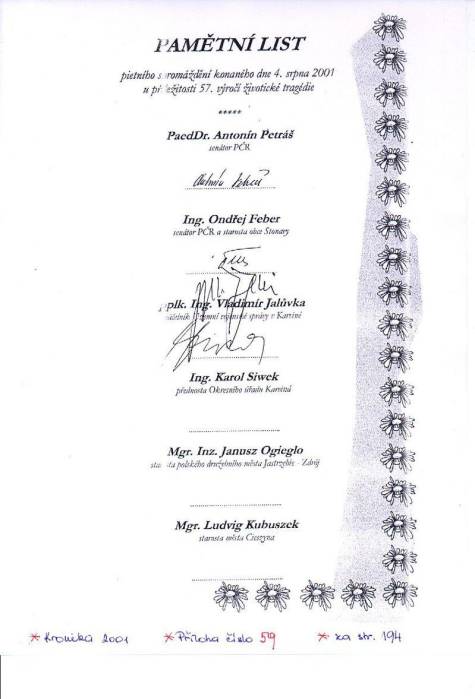 PAMĚTNÍ LIST
pietního shromáždění konaného dne 4. srpna 2001
u příležitosti 57. výročí životické tragédie
*****
PaedDr. Antonín Petráš
senátor PČR
Ing. Ondřej Feber
senátor PČR a starosta obce Stonavy
plk. Ing. Vladimír Jalůvka
náčelník Územní vojenské správy v Karviné
Ing. Karol Siwek
přednosta Okresního úřadu Karviná
Mgr. Inz. Janusz Ogiegło
starosta polského družebního města Jastrzębie - Zdrój
Mgr. Ludvig Kubuszek
starosta města Cieszyna
* Kronika 2001 * Příloha číslo 59 * za str. 194